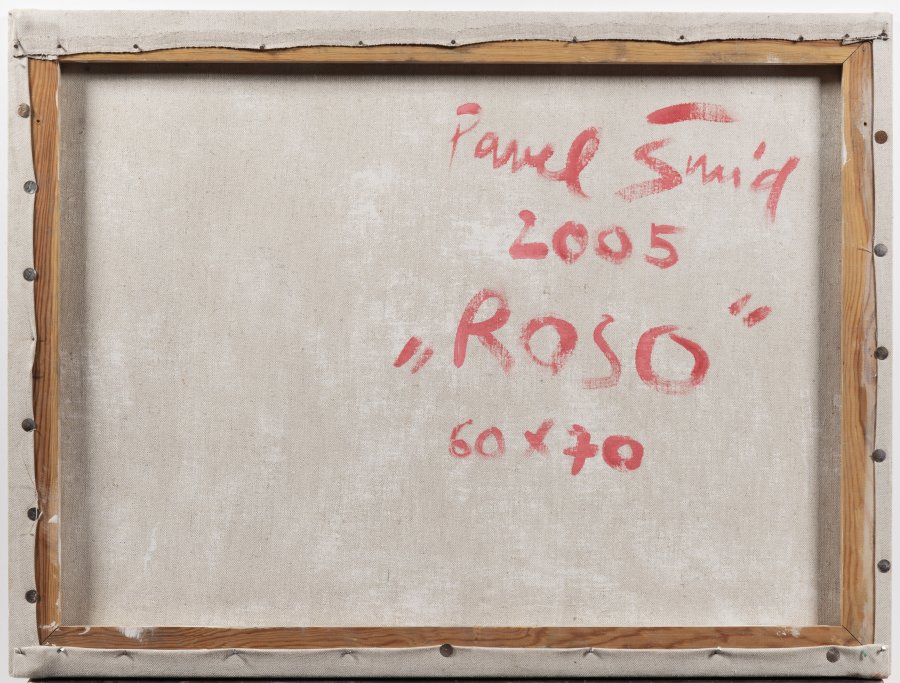 Pavel Šmíd
2005
„ROSO“
60x70